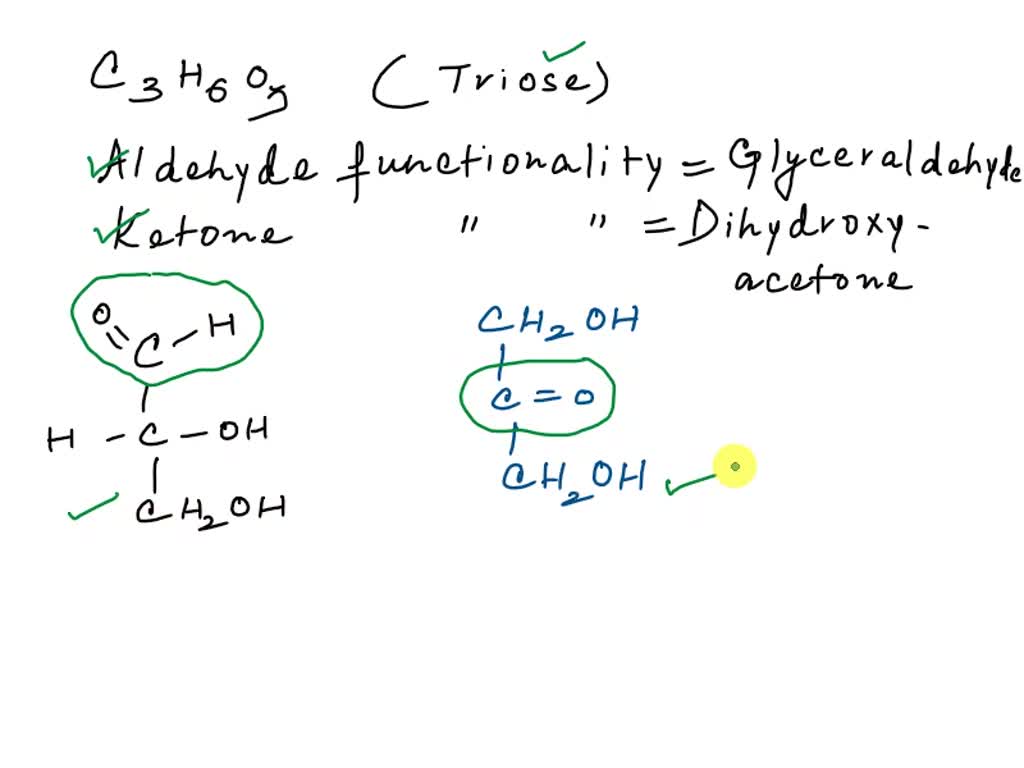 C3H6O3 (Triose)
Aldehyde functionality = Glyceraldehyde
Ketone " " = Dihydroxy-
acetone
O=C-H
H-C-OH
CH2OH
CH2OH
C=O
CH2OH